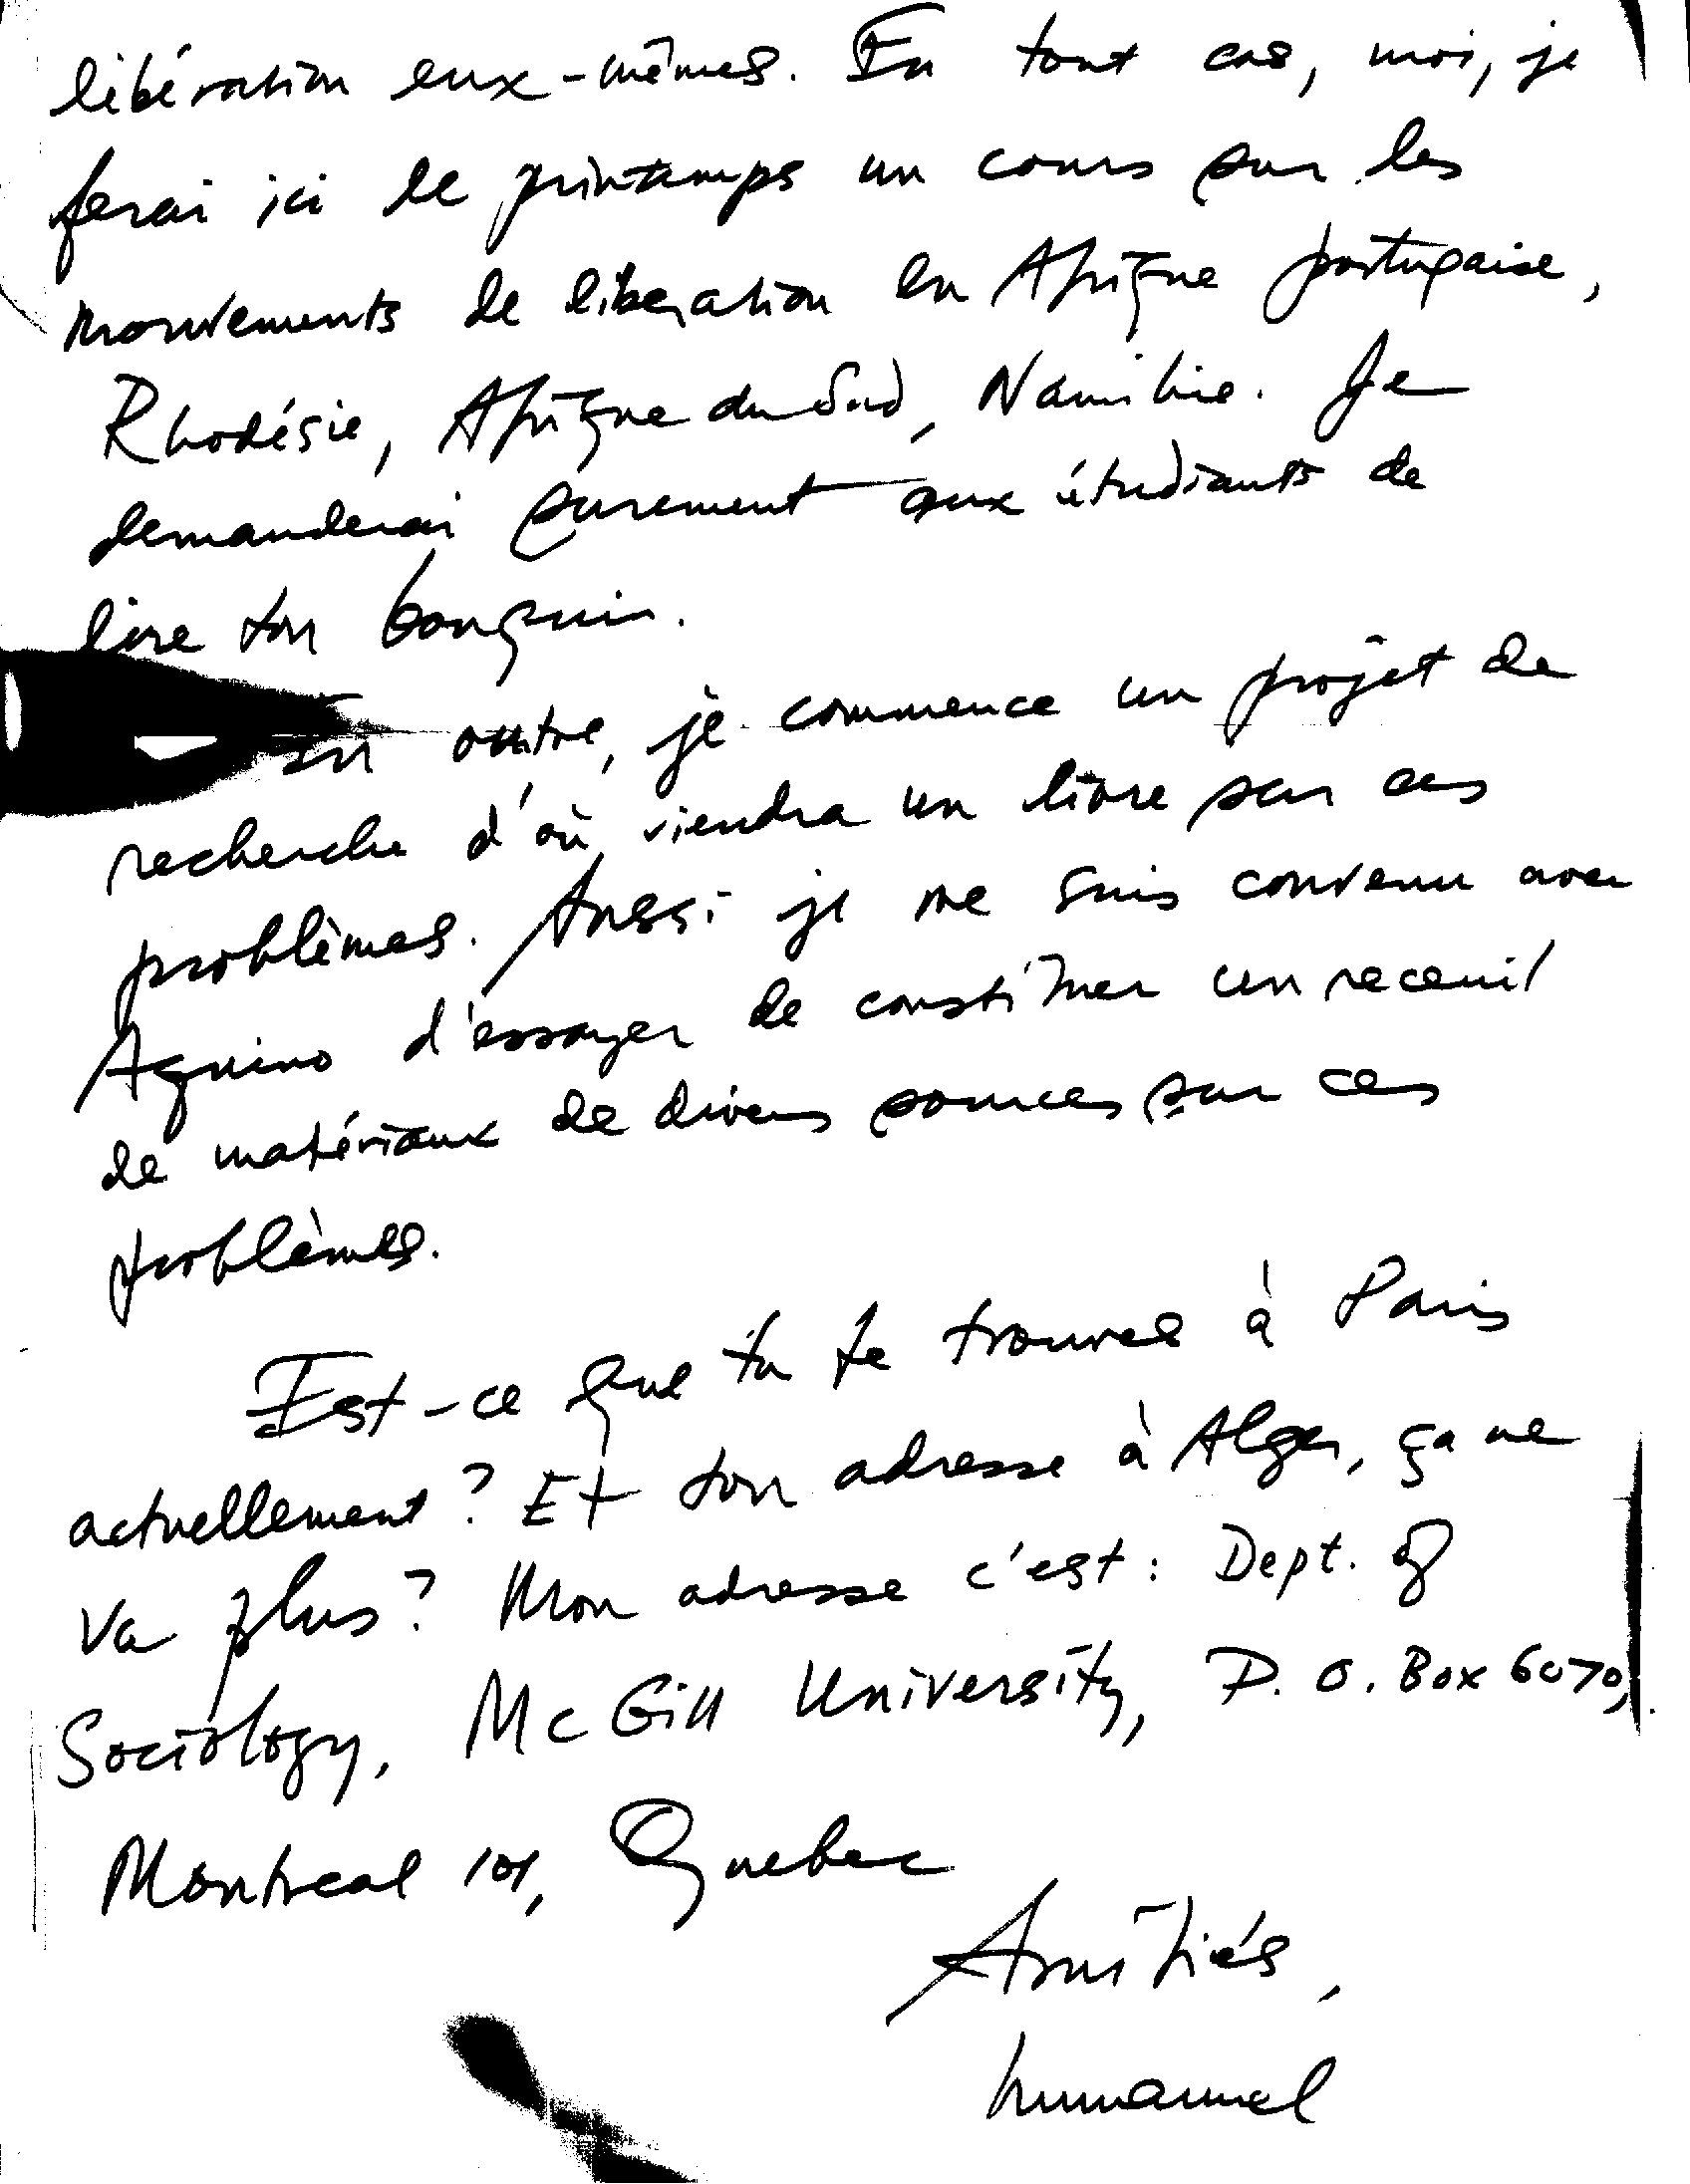 libération eux-mêmes. En tout cas, moi, je
ferai ici le printemps un cours sur les
mouvements de libération en Afrique portugaise,
Rhodésie, Afrique du Sud, Namibie. Je
demanderai surement aux étudiants de
lire ton bouquin.
En outre, je commence un projet de
recherche d'où viendra un livre sur ces
problèmes. Aussi je me suis convenu avec
Aquino d'essayer de constituer un receuil
de matériaux de divers sources sur ces
problèmes.
Est-ce que tu te trouves à Paris
actuellement? Et ton adresse à Alger, ça ne
va plus? Mon adresse c'est: Dept. of
Sociology, McGill University, P.O. Box 6070,
Montreal 101, Quebec
Amitiés,
Immanuel